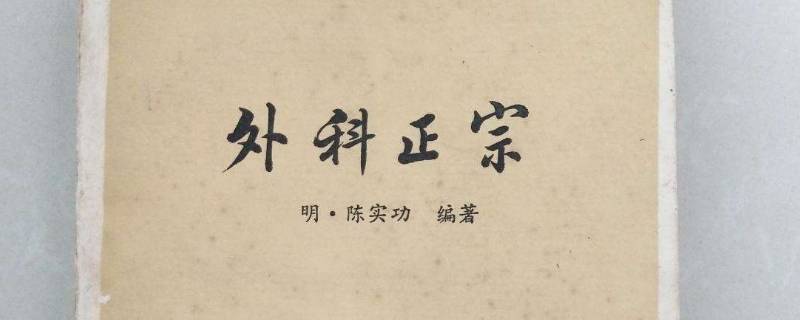 外科正宗
明·陈实功 编著